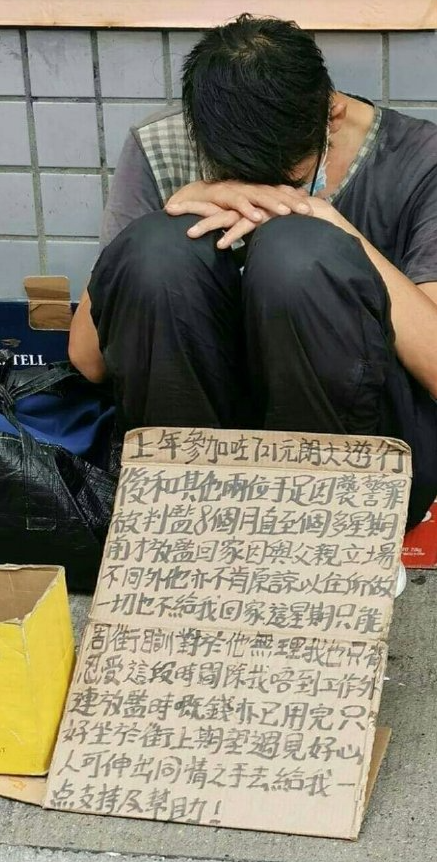 TELL
上年參加咗721元朗大遊行
後和其他兩位手足因襲警罪
被判監8個月直至個多星期
前才放監回家因與父親立場
不同外他亦不肯原諒以住所做
一切也不給我回家這星期只能
周街瞓對於他無理我也只有
忍受這段時間除我唔到工作外
連放監時嘅錢亦已用完只
好坐於街上期望遇見好心
人可伸出同情之手去給我一
點支持及幫助!